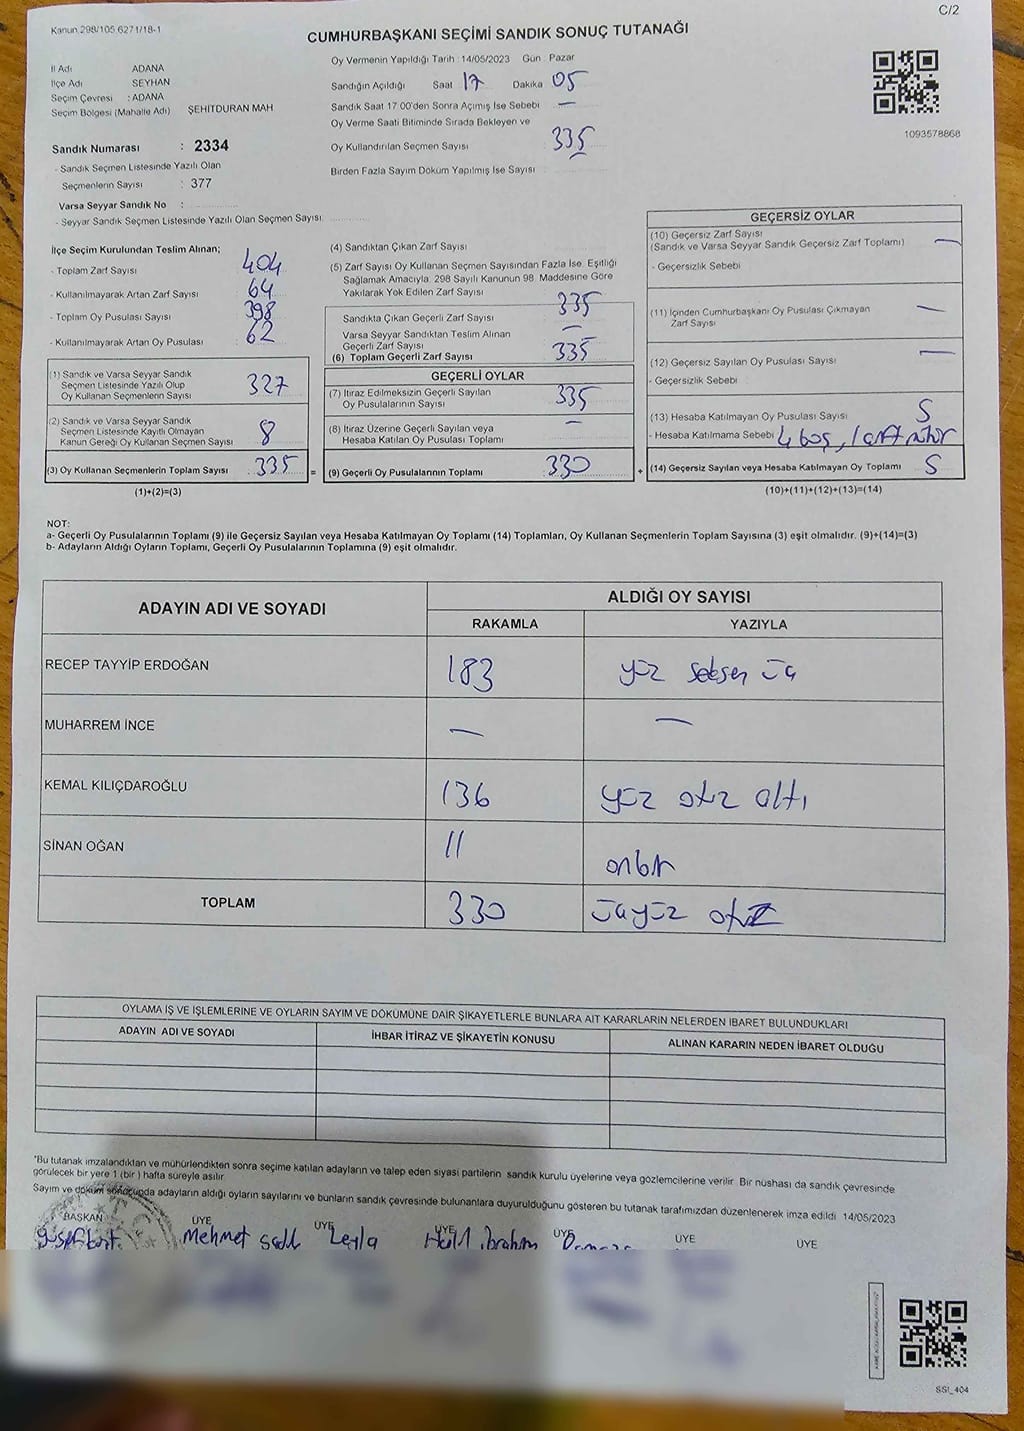 C/2
Kanun 298/105 6271/18-1
CUMHURBAŞKANI SEÇİMİ SANDIK SONUÇ TUTANAĞI
İl Adı ADANA
İlçe Adı SEYHAN
Seçim Çevresi : ADANA
Seçim Bölgesi (Mahalle Adı) ŞEHİTDURAN MAH
Sandık Numarası : 2334
- Sandık Seçmen Listesinde Yazılı Olan
Seçmenlerin Sayısı : 377
Varsa Seyyar Sandık No :
- Seyyar Sandık Seçmen Listesinde Yazılı Olan Seçmen Sayısı
Oy Vermenin Yapıldığı Tarih : 14/05/2023 Gün : Pazar
Sandığın Açıldığı Saat 17 Dakika 05
Sandık Saat 17:00'den Sonra Açımış İse Sebebi —
Oy Verme Saati Bitiminde Sırada Bekleyen ve
Oy Kullandırılan Seçmen Sayısı 335
Birden Fazla Sayım Döküm Yapılmış İse Sayısı
1093578868
İlçe Seçim Kurulundan Teslim Alınan;
- Toplam Zarf Sayısı 404
- Kullanılmayarak Artan Zarf Sayısı 64
- Toplam Oy Pusulası Sayısı 398
- Kullanılmayarak Artan Oy Pusulası 62
(1) Sandık ve Varsa Seyyar Sandık
Seçmen Listesinde Yazılı Olup
Oy Kullanan Seçmenlerin Sayısı 327
(2) Sandık ve Varsa Seyyar Sandık
Seçmen Listesinde Kayıtlı Olmayan
Kanun Gereği Oy Kullanan Seçmen Sayısı 8
(3) Oy Kullanan Seçmenlerin Toplam Sayısı 335 =
(1)+(2)=(3)
(4) Sandıktan Çıkan Zarf Sayısı
(5) Zarf Sayısı Oy Kullanan Seçmen Sayısından Fazla İse. Eşitliği
Sağlamak Amacıyla: 298 Sayılı Kanunun 98. Maddesine Göre
Yakılarak Yok Edilen Zarf Sayısı
Sandıkta Çıkan Geçerli Zarf Sayısı 335
Varsa Seyyar Sandıktan Teslim Alınan
Geçerli Zarf Sayısı —
(6) Toplam Geçerli Zarf Sayısı 335
GEÇERLİ OYLAR
(7) İtiraz Edilmeksizin Geçerli Sayılan
Oy Pusulalarının Sayısı 335
(8) İtiraz Üzerine Geçerli Sayılan veya
Hesaba Katılan Oy Pusulası Toplamı —
(9) Geçerli Oy Pusulalarının Toplamı 330 +
GEÇERSİZ OYLAR
(10) Geçersiz Zarf Sayısı
(Sandık ve Varsa Seyyar Sandık Geçersiz Zarf Toplamı) —
- Geçersizlik Sebebi
(11) İçinden Cumhurbaşkanı Oy Pusulası Çıkmayan
Zarf Sayısı —
(12) Geçersiz Sayılan Oy Pusulası Sayısı —
- Geçersizlik Sebebi
(13) Hesaba Katılmayan Oy Pusulası Sayısı 5
- Hesaba Katılmama Sebebi 4 boş, 1 çift mühür
(14) Geçersiz Sayılan veya Hesaba Katılmayan Oy Toplamı 5
(10)+(11)+(12)+(13)=(14)
NOT:
a- Geçerli Oy Pusulalarının Toplamı (9) ile Geçersiz Sayılan veya Hesaba Katılmayan Oy Toplamı (14) Toplamları, Oy Kullanan Seçmenlerin Toplam Sayısına (3) eşit olmalıdır. (9)+(14)=(3)
b- Adayların Aldığı Oyların Toplamı, Geçerli Oy Pusulalarının Toplamına (9) eşit olmalıdır.
ADAYIN ADI VE SOYADI ALDIĞI OY SAYISI
RAKAMLA YAZIYLA
RECEP TAYYİP ERDOĞAN 183 yüz seksen üç
MUHARREM İNCE — —
KEMAL KILIÇDAROĞLU 136 yüz otuz altı
SİNAN OĞAN 11 onbir
TOPLAM 330 üçyüz otuz
OYLAMA İŞ VE İŞLEMLERİNE VE OYLARIN SAYIM VE DÖKÜMÜNE DAİR ŞİKAYETLERLE BUNLARA AİT KARARLARIN NELERDEN İBARET BULUNDUKLARI
ADAYIN ADI VE SOYADI İHBAR İTİRAZ VE ŞİKAYETİN KONUSU ALINAN KARARIN NEDEN İBARET OLDUĞU
*Bu tutanak imzalandıktan ve mühürlendikten sonra seçime katılan adayların ve talep eden siyasi partilerin sandık kurulu üyelerine veya gözlemcilerine verilir. Bir nüshası da sandık çevresinde
görülecek bir yere 1 (bir) hafta süreyle asılır
Sayım ve döküm sonucunda adayların aldığı oyların sayılarını ve bunların sandık çevresinde bulunanlara duyurulduğunu gösteren bu tutanak tarafımızdan düzenlenerek imza edildi 14/05/2023
BAŞKAN ÜYE ÜYE ÜYE ÜYE ÜYE ÜYE
Mehmet Leyla Halil ibrahim
SSI_404